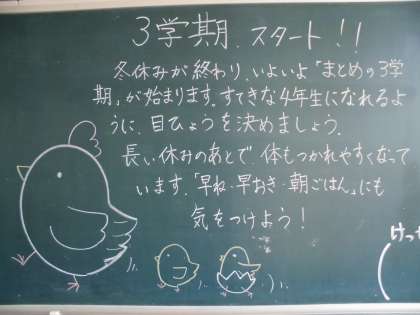 3学期、スタート!!
冬休みが終わり、いよいよ「まとめの3学
期」が始まります。すてきな4年生になれるよ
うに、目ひょうを決めましょう。
長い休みのあとで、体もつかれやすくなって
います。「早ね・早おき・朝ごはん」にも
気をつけよう!
けっ